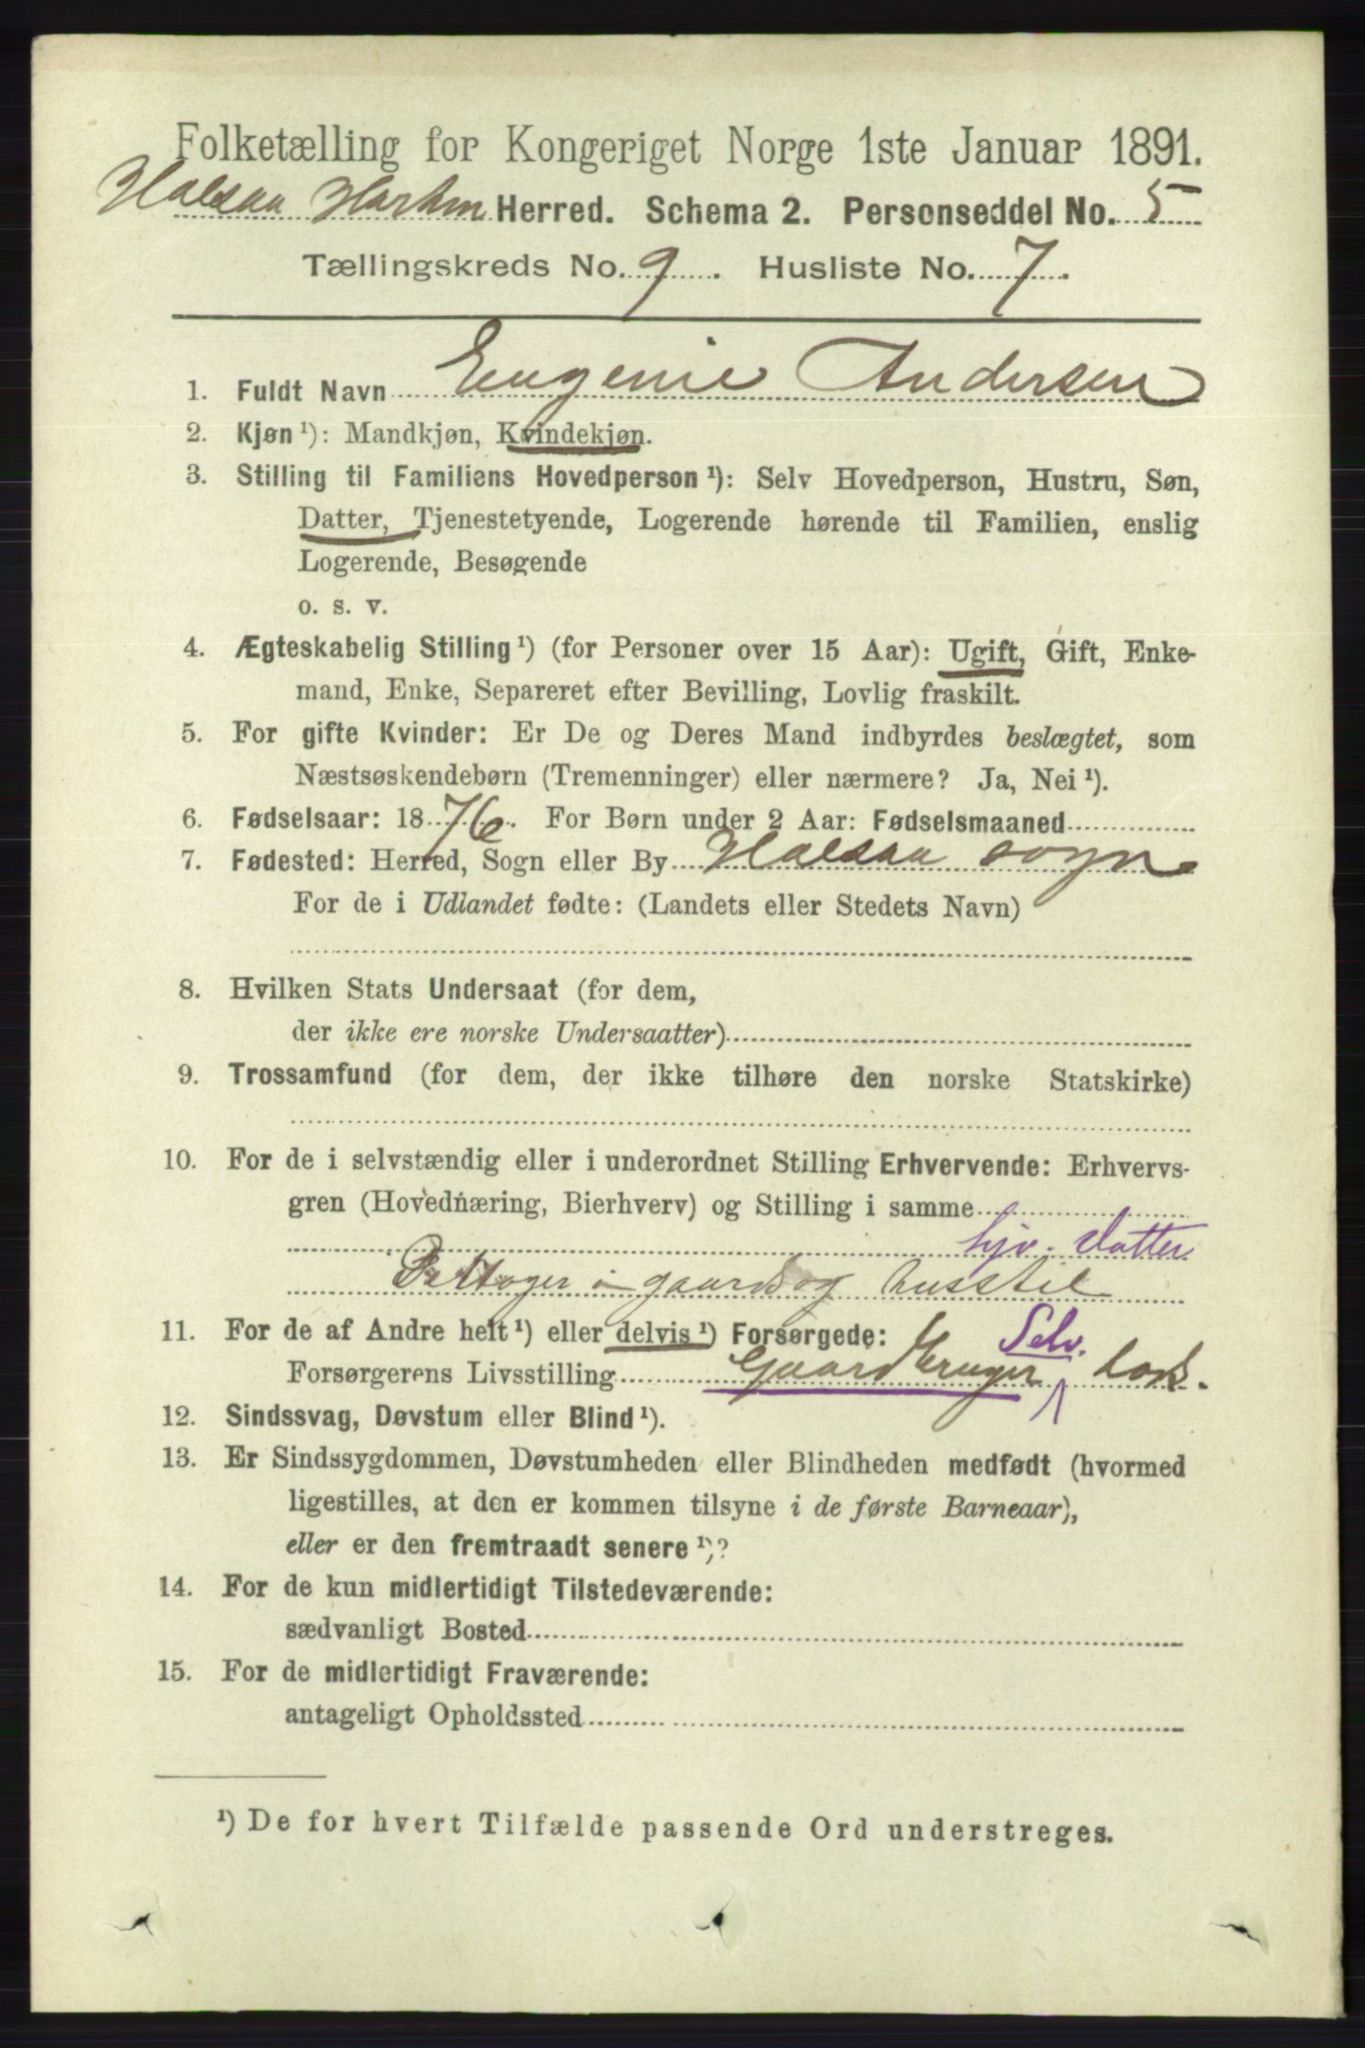 Folketælling for Kongeriget Norge 1ste Januar 1891.
Halsaa Herred. Schema 2. Personseddel No. 5
Tællingskreds No. 9. Husliste No. 7.
1. Fuldt Navn Eugenie Andersen
2. Kjøn ¹): Mandkjøn, Kvindekjøn.
3. Stilling til Familiens Hovedperson ¹): Selv Hovedperson, Hustru, Søn,
Datter, Tjenestetyende, Logerende hørende til Familien, enslig
Logerende, Besøgende
o. s. v.
4. Ægteskabelig Stilling ¹) (for Personer over 15 Aar): Ugift, Gift, Enke-
mand, Enke, Separeret efter Bevilling, Lovlig fraskilt.
5. For gifte Kvinder: Er De og Deres Mand indbyrdes beslægtet, som
Næstsøskendebørn (Tremenninger) eller nærmere? Ja, Nei ¹).
6. Fødselsaar: 1876. For Børn under 2 Aar: Fødselsmaaned
7. Fødested: Herred, Sogn eller By Halsaa sogn
For de i Udlandet fødte: (Landets eller Stedets Navn)
8. Hvilken Stats Undersaat (for dem,
der ikke ere norske Undersaatter)
9. Trossamfund (for dem, der ikke tilhøre den norske Statskirke)
10. For de i selvstændig eller i underordnet Stilling Erhvervende: Erhvervs-
gren (Hovednæring, Bierhverv) og Stilling i samme
hjv. datter
Deltager i gaards og husstel
11. For de af Andre helt ¹) eller delvis ¹) Forsørgede:
Forsørgerens Livsstilling Gaardbruger Selv.
12. Sindssvag, Døvstum eller Blind ¹).
13. Er Sindssygdommen, Døvstumheden eller Blindheden medfødt (hvormed
ligestilles, at den er kommen tilsyne i de første Barneaar),
eller er den fremtraadt senere ¹)?
14. For de kun midlertidigt Tilstedeværende:
sædvanligt Bosted
15. For de midlertidigt Fraværende:
antageligt Opholdssted
¹) De for hvert Tilfælde passende Ord understreges.